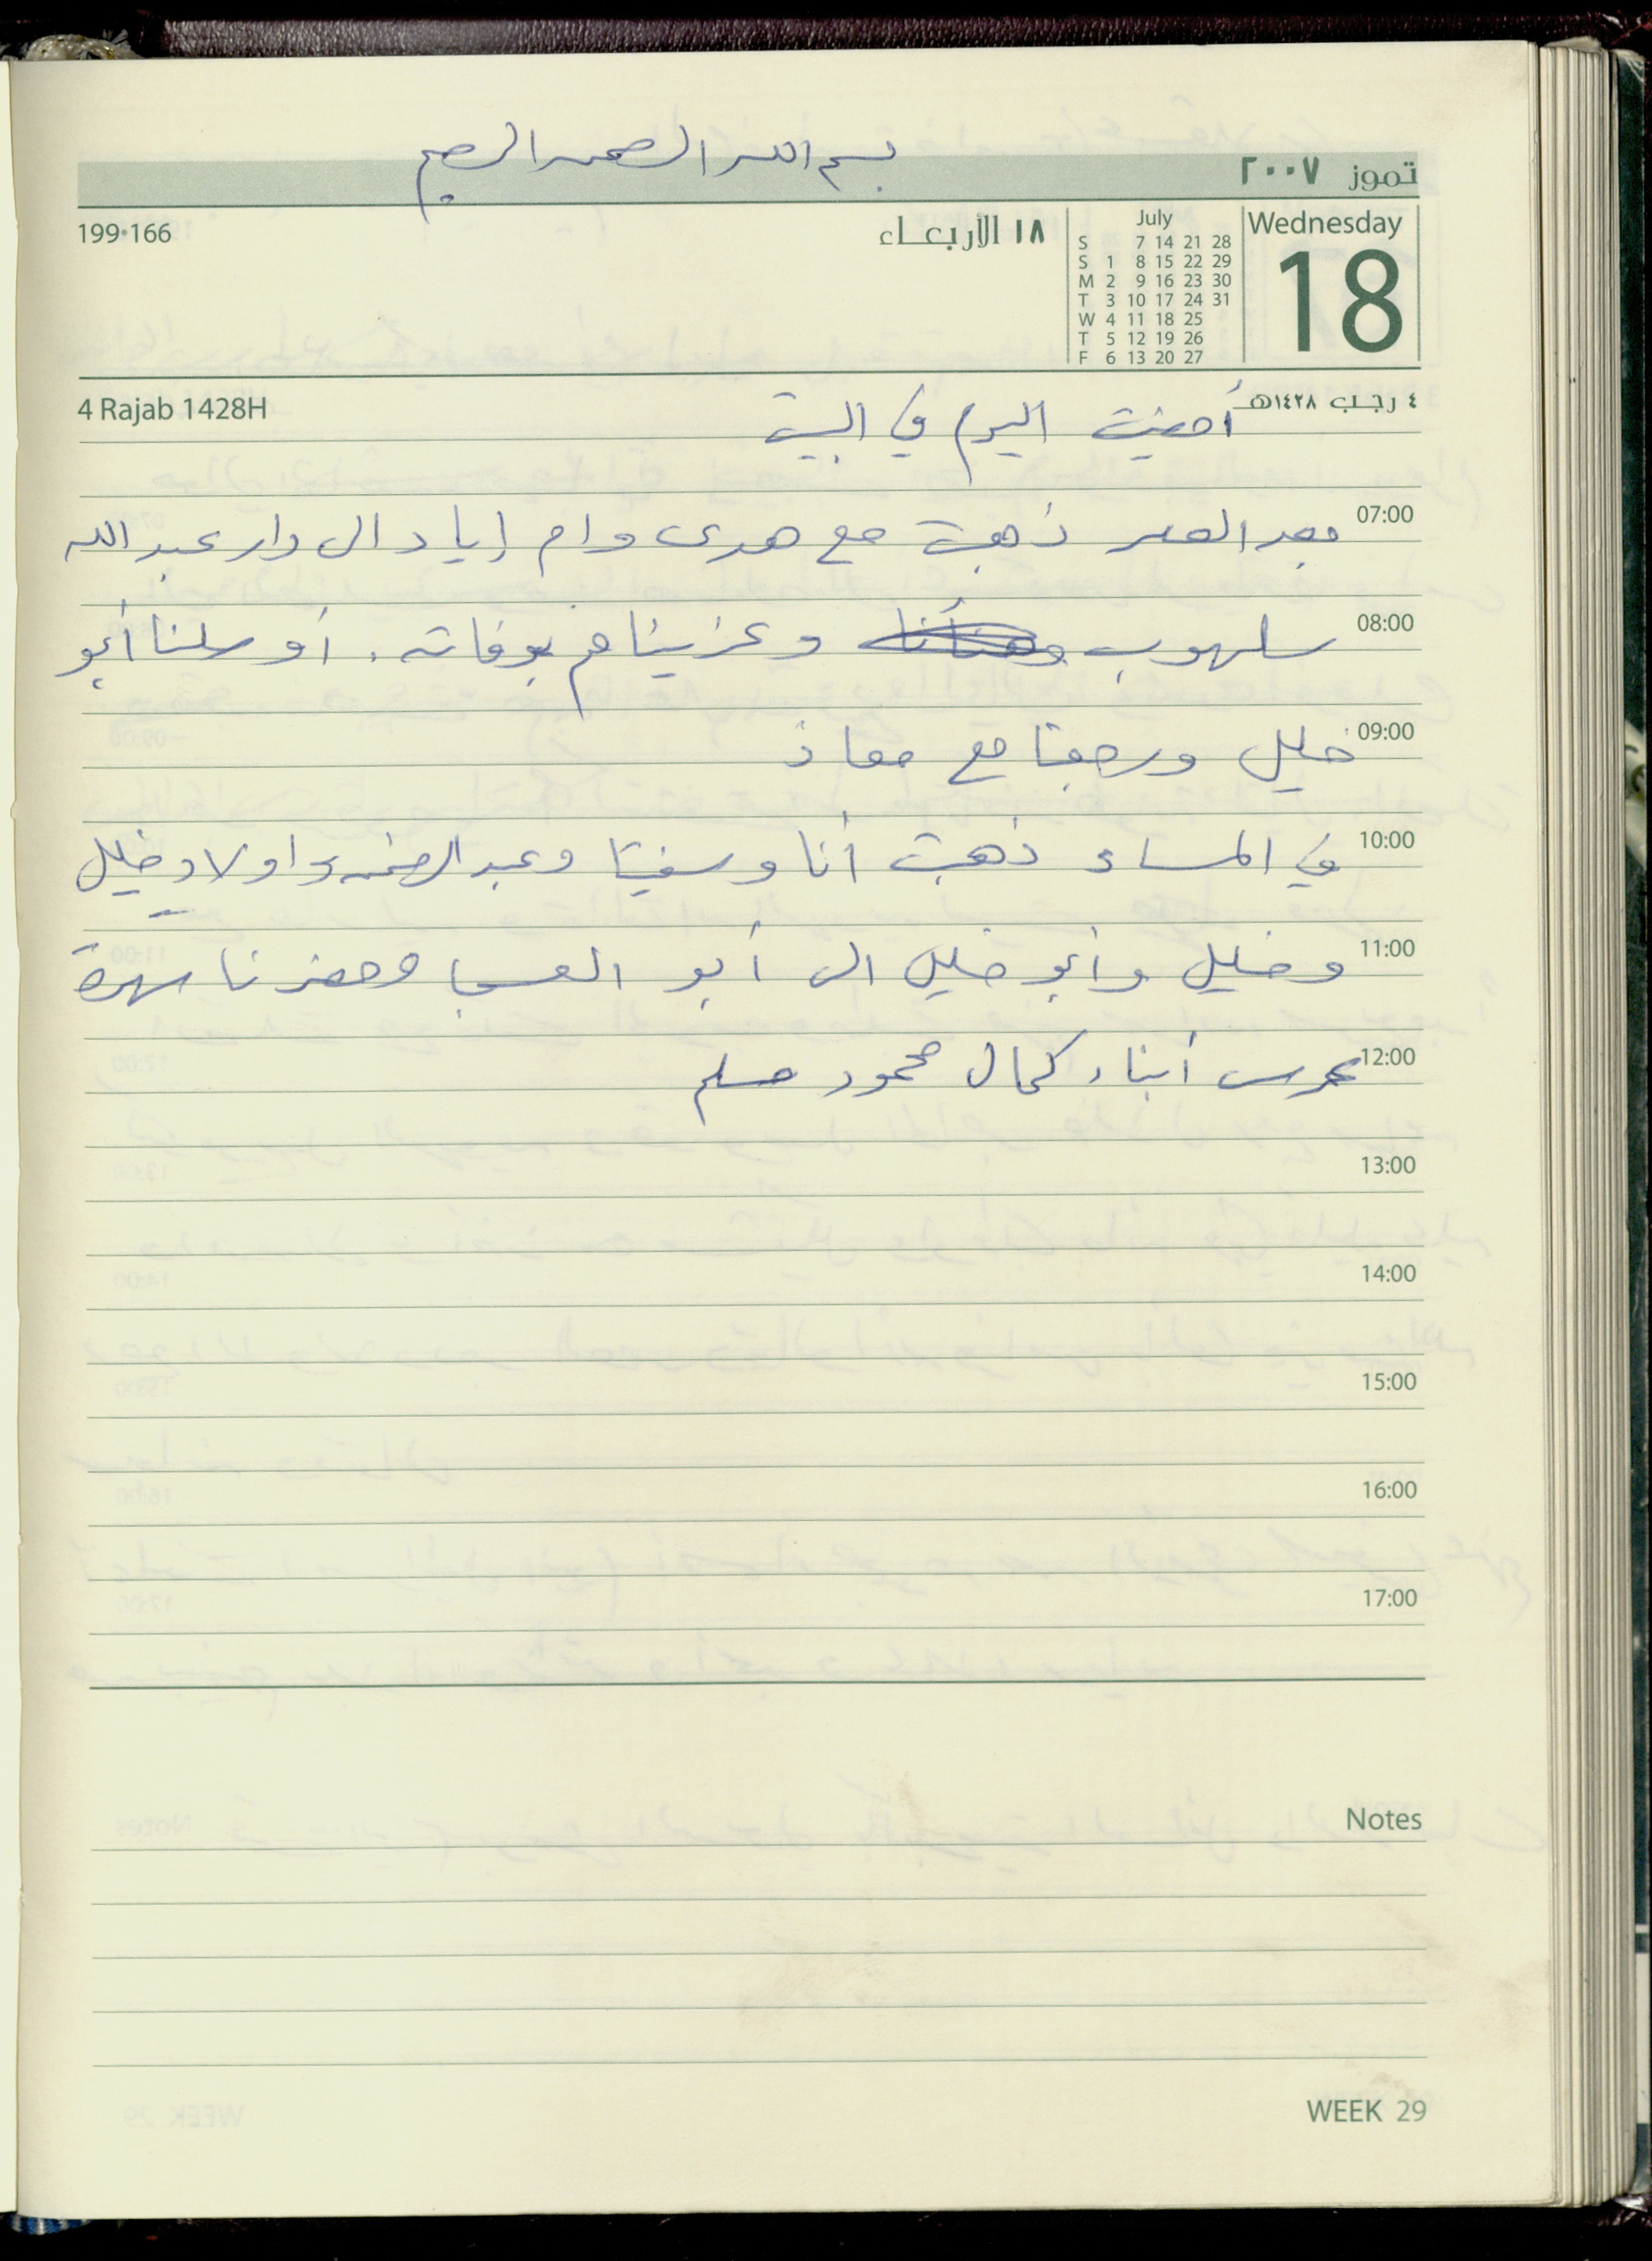 بسم الله الرحمن الرحيم
تموز ٢٠٠٧
Wednesday
18
July
S 7 14 21 28
S 1 8 15 22 29
M 2 9 16 23 30
T 3 10 17 24 31
W 4 11 18 25
T 5 12 19 26
F 6 13 20 27
١٨ الاربعاء
199•166
٤ رجب ١٤٢٨هـ
4 Rajab 1428H
أمضيت اليوم في البيت
07:00
بعد العصر ذهبت مع هدى وام إياد الى دار عبد الله
08:00
سلهوب وهنأنا وعزيناهم بوفاته. أوصلنا أبو
09:00
خليل ورجعنا مع معاذ
10:00
في المساء ذهبت أنا وسفيتا وعبد الرحمن واولاد خليل
11:00
وخليل وأبو خليل الى أبو العسجا وحضرنا سهرة
12:00
عرس أبناء كمال محمود مسلم
13:00
14:00
15:00
16:00
17:00
Notes
WEEK 29